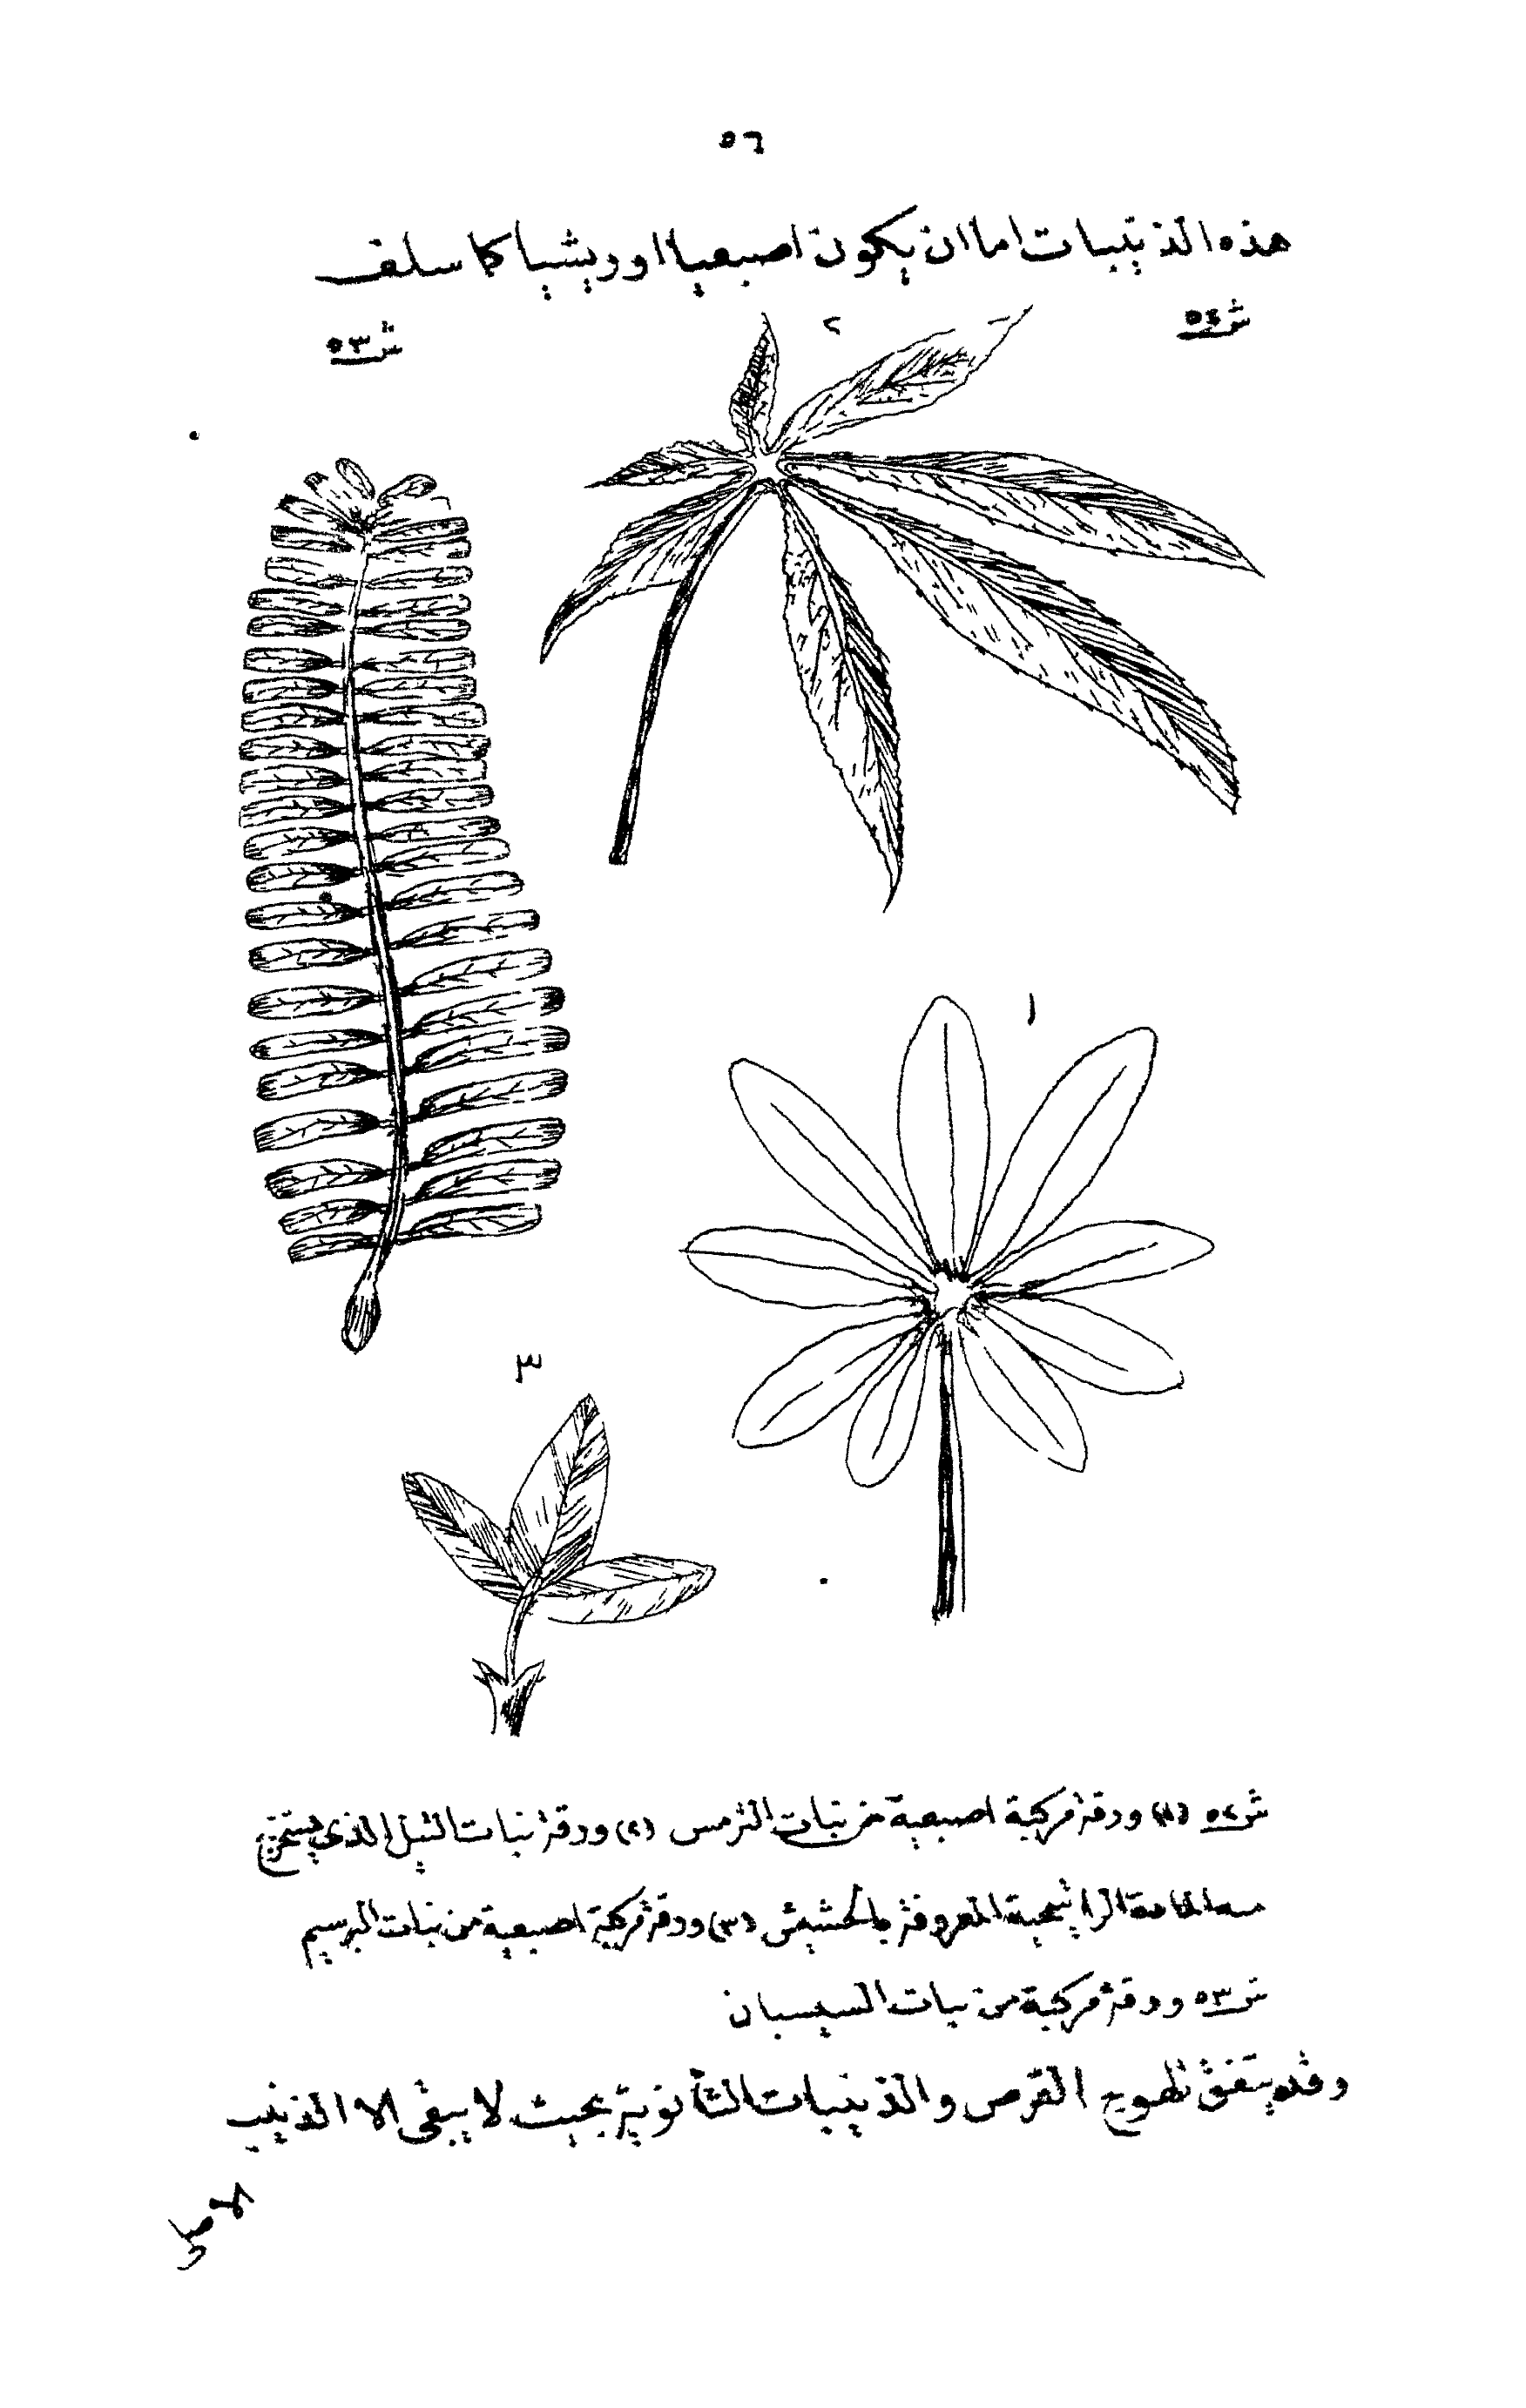 ٥٦
هذه الذنيبات اما ان يكون اصبعيا اوريشيا كما سلف
ش٥٤
ش٥٣
٢
١
٣
ش٥٢ (١) ورقة مركبة اصبعية من نبات الترمس (٢) ورقة نبات التيل الذي يستخرج
منه المادة الراتينجية المعروفة بالحشيش (٣) ورقة مركبة اصبعية من نبات البرسيم
ش٥٣ ورقة مركبة من نبات السيسبان
وقد يتفق القرص والذنيبات الثانوية بحيث لا يبقى الا الذنيب